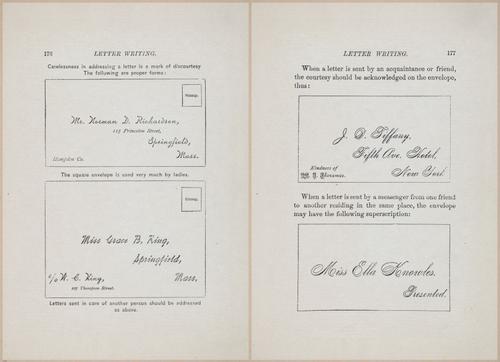 176 LETTER WRITING.
Carelessness in addressing a letter is a mark of discourtesy
The following are proper forms:
Stamp.
Mr. Norman D. Richardson,
115 Princeton Street,
Springfield,
Hampden Co. Mass.
The square envelope is used very much by ladies.
Stamp.
Miss Grace B. King,
Springfield,
c/o W. C. King, Mass.
Thompson Street.
Letters sent in care of another person should be addressed
as above.
LETTER WRITING. 177
When a letter is sent by an acquaintance or friend,
the courtesy should be acknowledged on the envelope,
thus:
J. D. Tiffany,
Fifth Ave. Hotel,
Kindness of New York.
When a letter is sent by a messenger from one friend
to another residing in the same place, the envelope
may have the following superscription:
Miss Ella Knowles.
Presented.